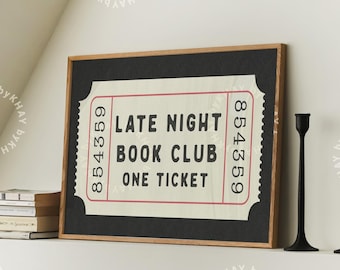 854359
LATE NIGHT
BOOK CLUB
ONE TICKET
854359